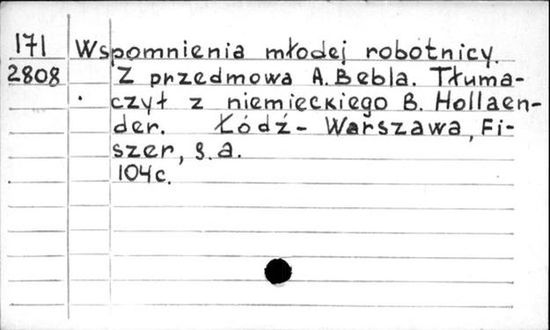 171 Wspomnienia młodej robotnicy.
2808 Z przedmowa A. Bebla. Tłuma-
czył z niemieckiego B. Hollaen-
der. Łódź - Warszawa, Fi-
szer, s. a.
104 c.